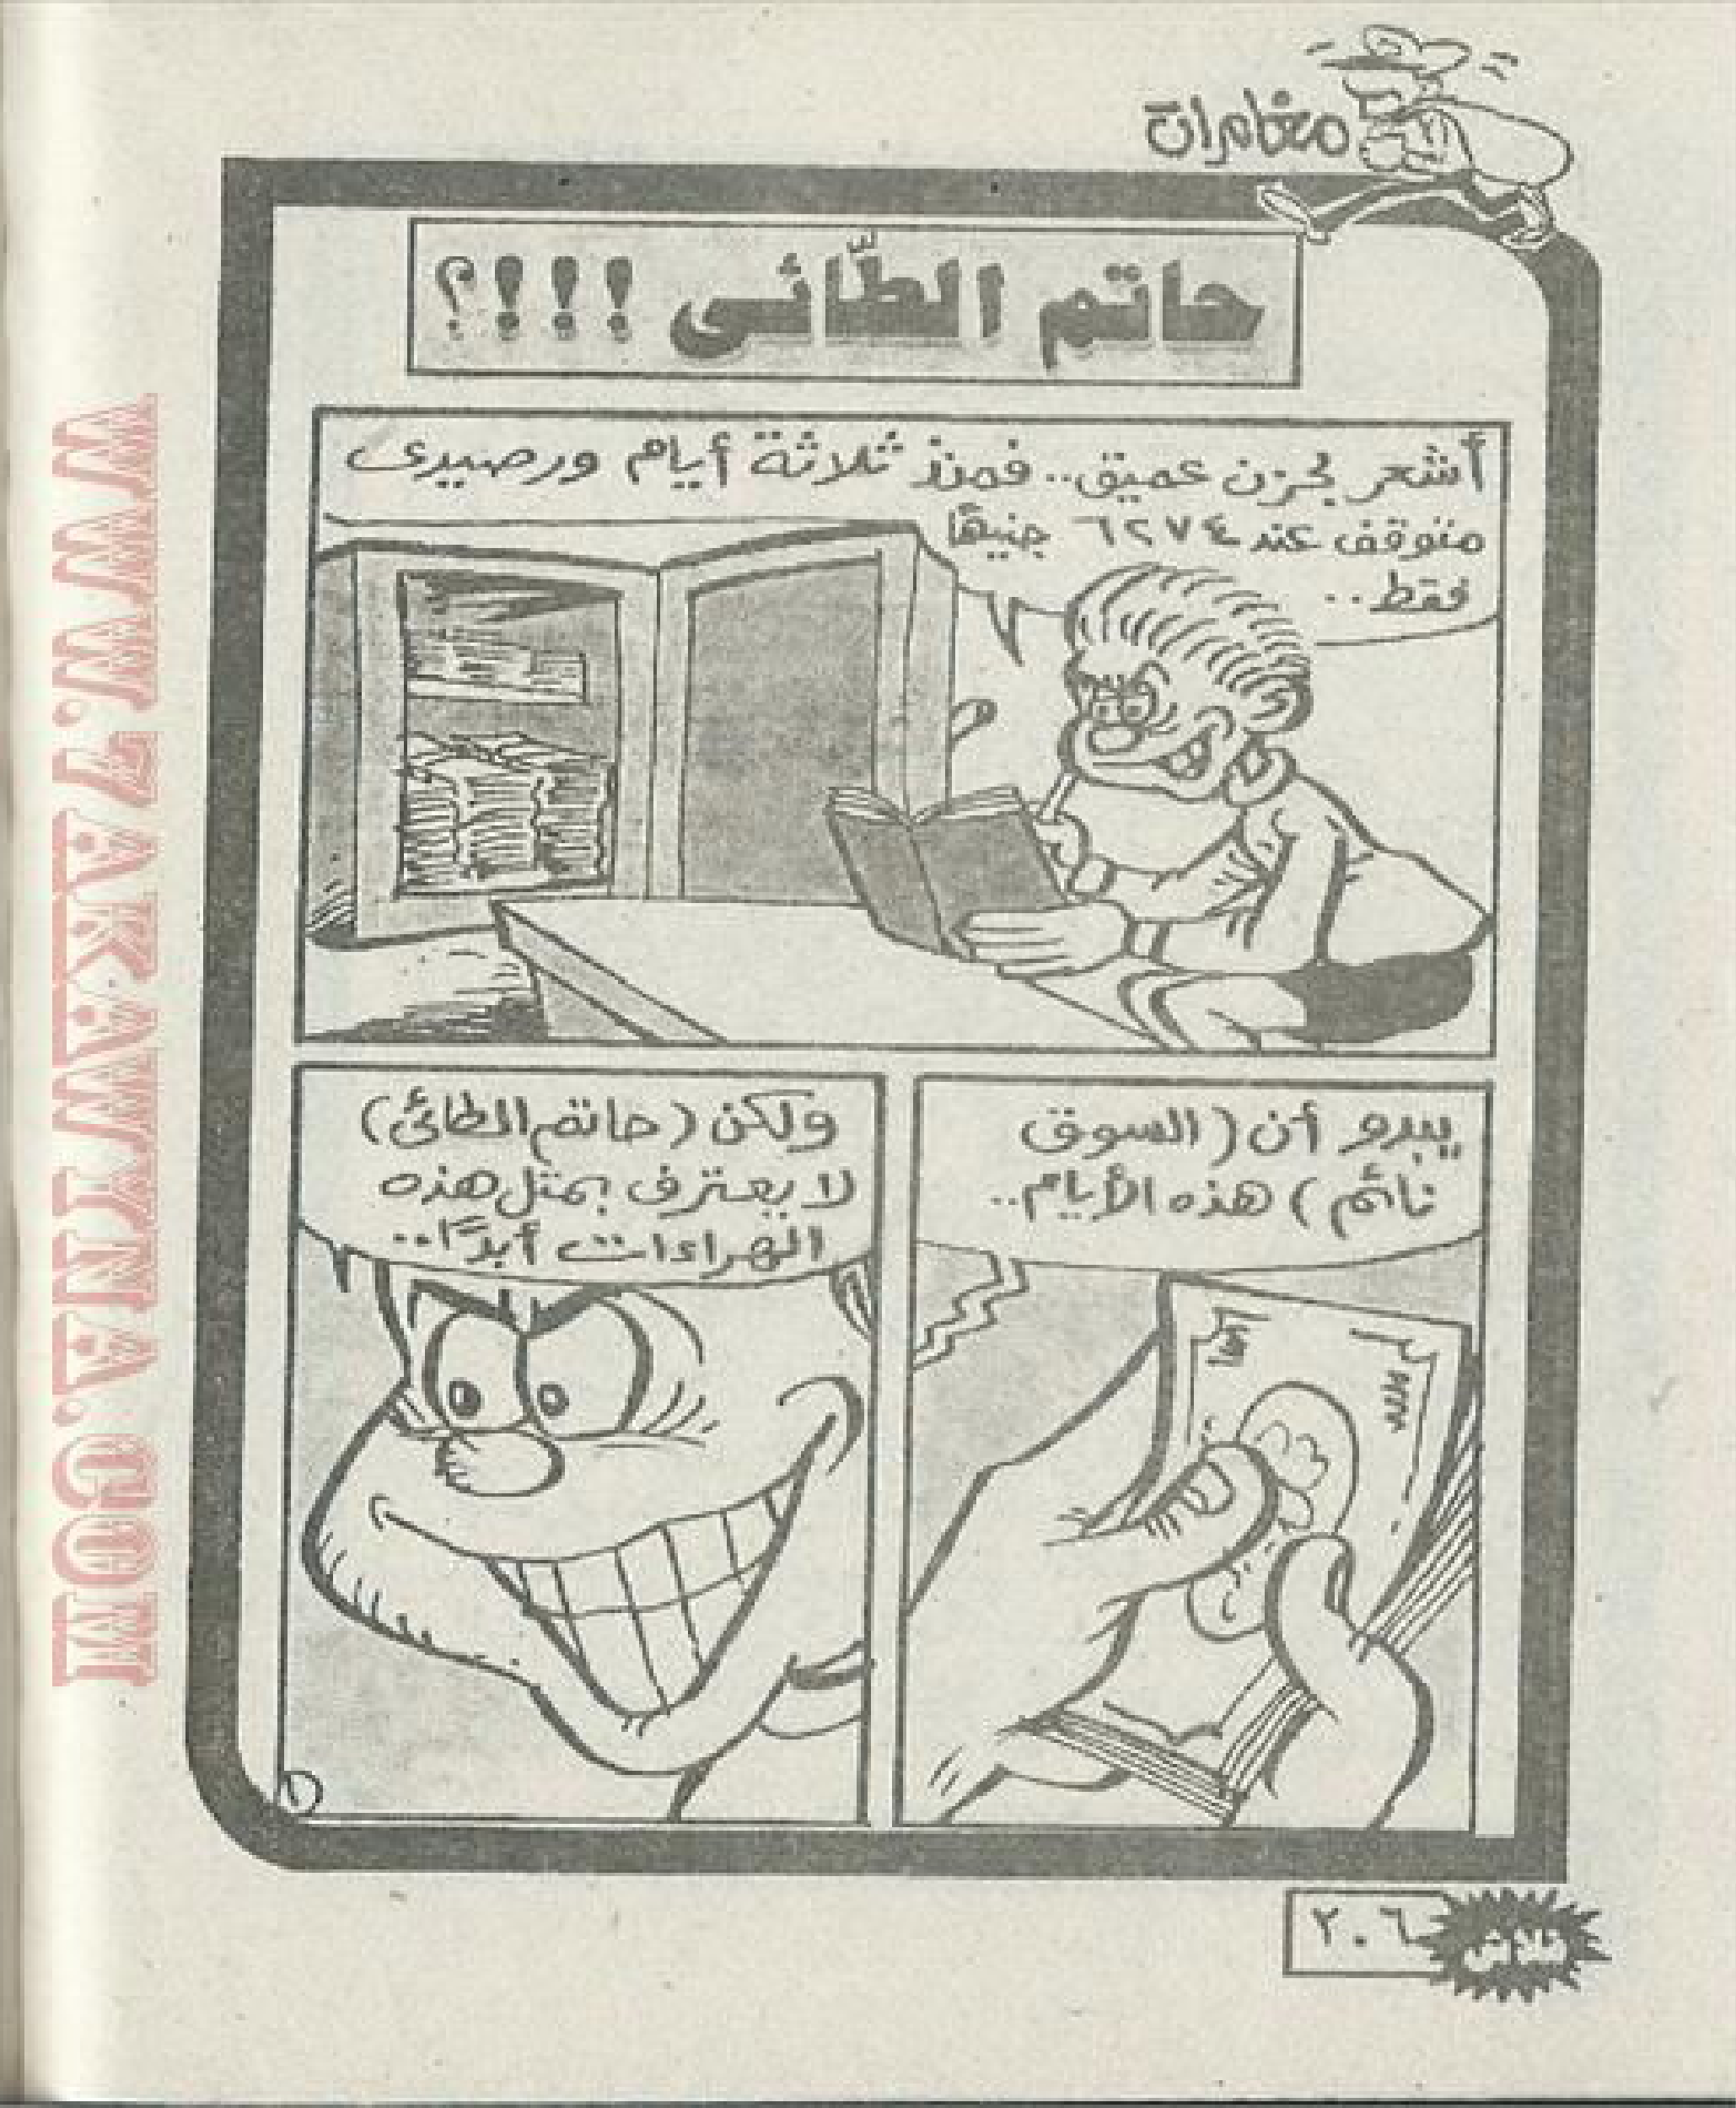 مغامرات
حاتم الطّائى !!!؟
أشعر بحزن عميق.. فمنذ ثلاثة أيام ورصيدى
متوقف عند ٦٢٧٤ جنيهًا
فقط..
يبدو أن (السوق
نائم) هذه الأيام..
ولكن (حاتم الطائى)
لا يعترف بمثل هذه
الهراءات أبدًا..
١
٢٠٦
فلاش
WWW.7AKAWITNA.COM